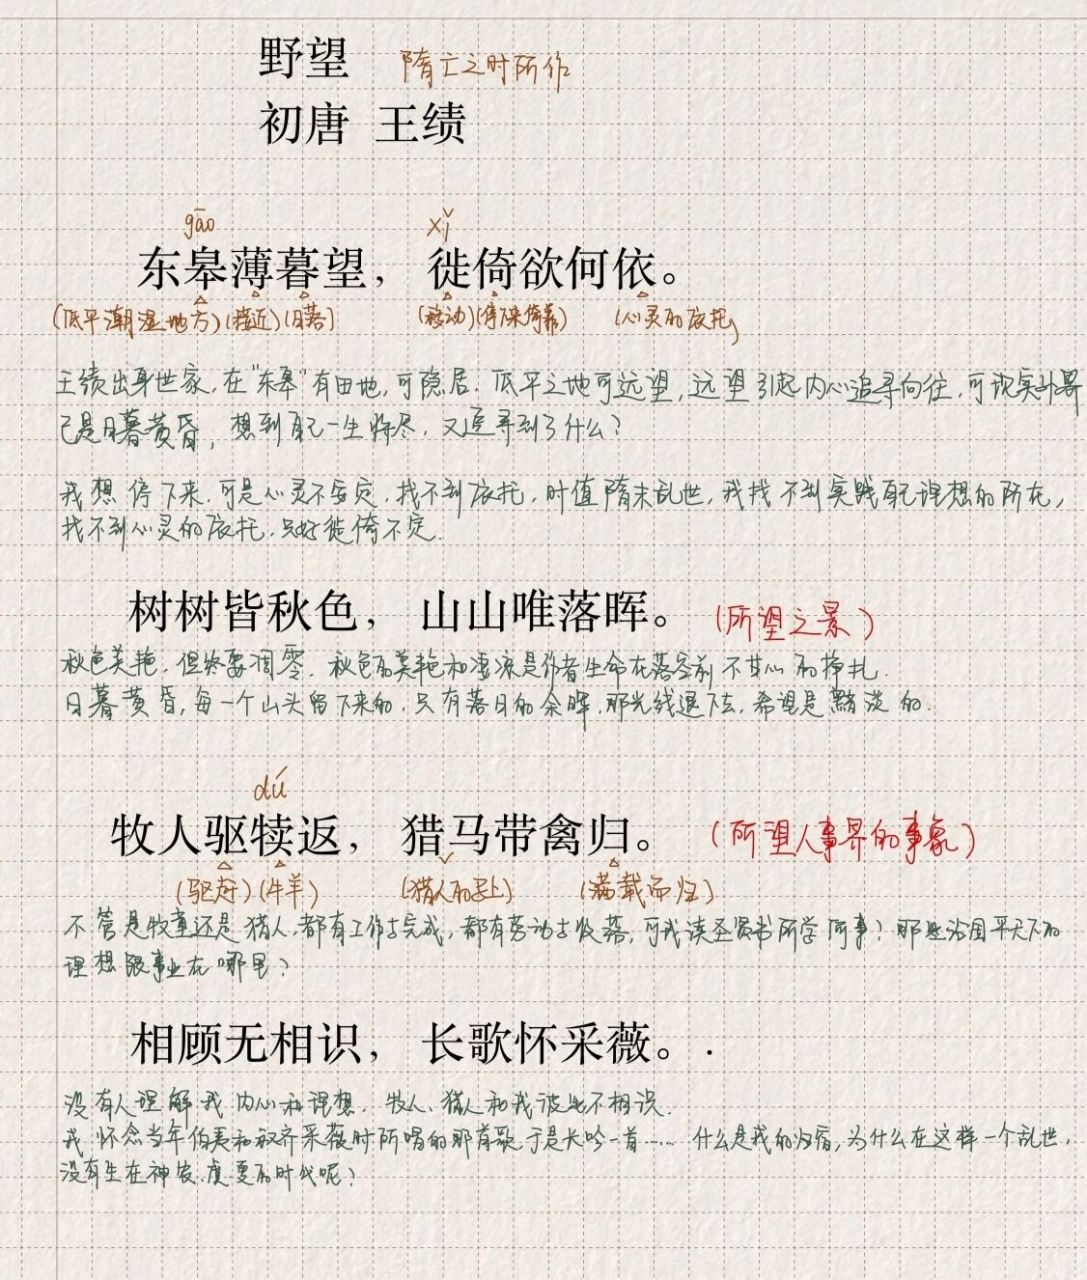 野望 隋亡之时所作
初唐 王绩
gāo xǐ
东皋薄暮望，徙倚欲何依。
(低平潮湿地方)(接近)(日落) (移动)(停下来倚靠) (心灵的依托)
王绩出身世家，在"东皋"有田地，可隐居。低平之地可远望，远望引起内心追寻向往，可现实外界
已是日暮黄昏，想到自己一生将尽，又追寻到了什么？
我想停下来，可是心灵不安定，找不到依托，时值隋末乱世，我找不到实践自己理想的所在，
找不到心灵的依托，只好徙倚不定.
树树皆秋色，山山唯落晖。(所望之景)
秋色美艳，但终要凋零，秋色的美艳和凄凉是作者生命在落空前不甘心的挣扎.
日暮黄昏，每一个山头留下来的，只有落日的余晖，那光线退下去，希望是黯淡的.
dú
牧人驱犊返，猎马带禽归。(所望人事界的事象)
(驱赶)(牛羊) (猎人的马上) (满载而归)
不管是牧童还是猎人，都有工作去完成，都有劳动去收落，可我读圣贤书所学何事？那些治国平天下的
理想跟事业在哪里？
相顾无相识，长歌怀采薇。.
没有人理解我内心和理想，牧人、猎人和我彼此不相识.
我怀念当年伯夷和叔齐采薇时所唱的那首歌，于是长吟一首…… 什么是我的归宿，为什么在这样一个乱世，
没有生在神农、虞、夏的时代呢？